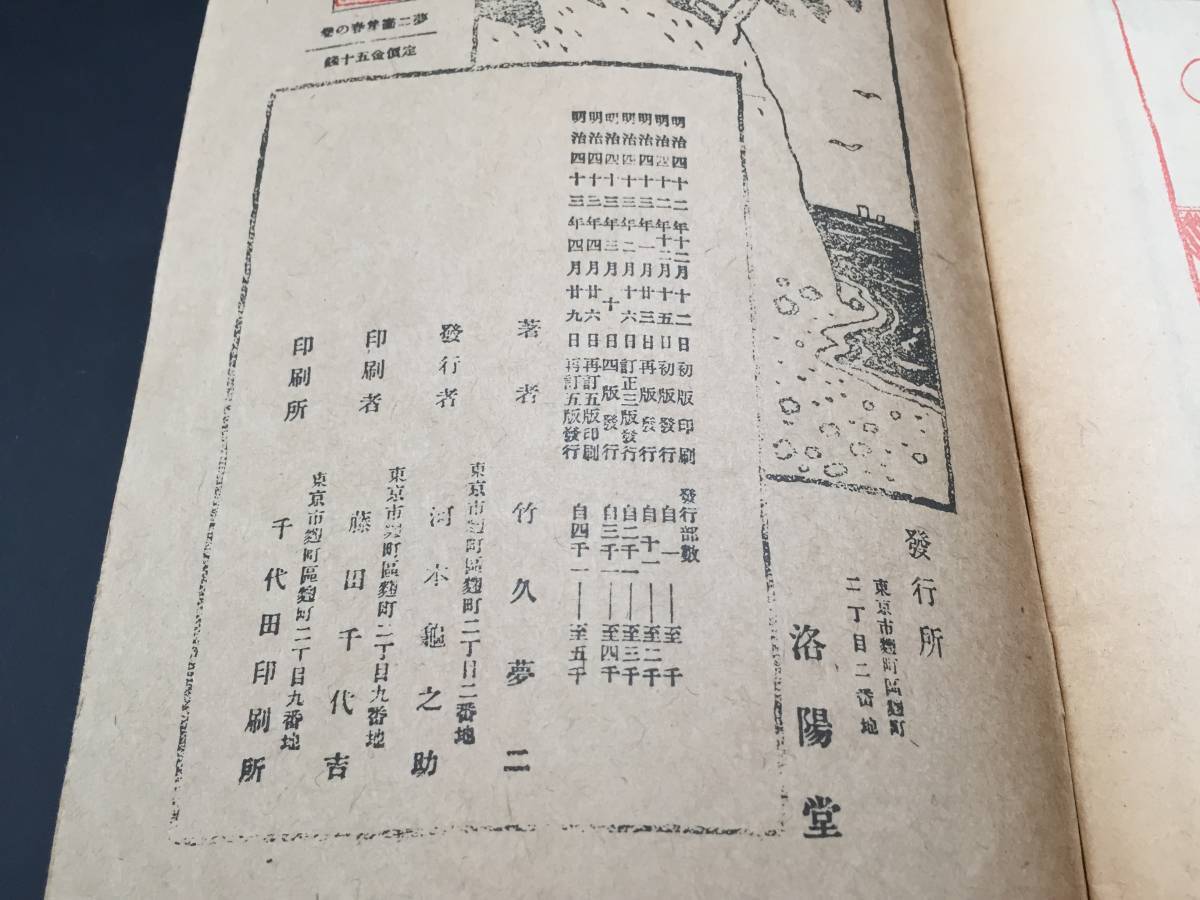 夢二畫集春の巻
定價金五十錢
發行所
東京市麹町區麹町
二丁目二番地
洛陽堂
明治四十二年十二月十二日初版印刷
明治四十二年十二月十五日初版發行
明治四十三年一月廿三日再版發行
明治四十三年二月十六日訂正三版發行
明治四十三年三月十日四版發行
明治四十三年四月廿六日再訂五版印刷
明治四十三年四月廿九日再訂五版發行
發行部數
自一——至千
自千一——至二千
自二千一——至三千
自三千一——至四千
自四千一——至五千
著者 竹久夢二
東京市麹町區麹町二丁目二番地
發行者 河本龜之助
東京市麹町區麹町二丁目九番地
印刷者 藤田千代吉
東京市麹町區麹町二丁目九番地
印刷所 千代田印刷所